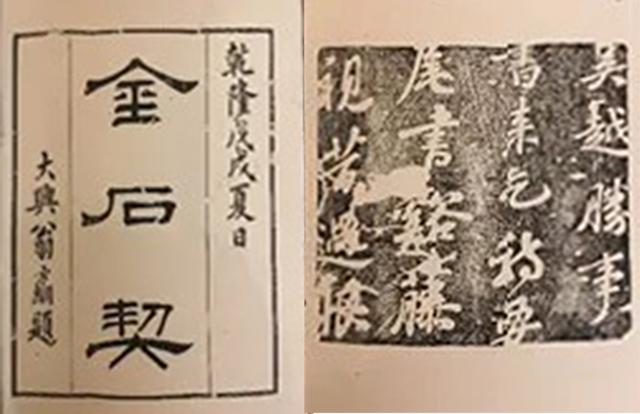 乾隆戊戌夏日
金石契
大興翁方綱題
吳越勝事
書來乞詩要
尾書谿藤
視昔過眼